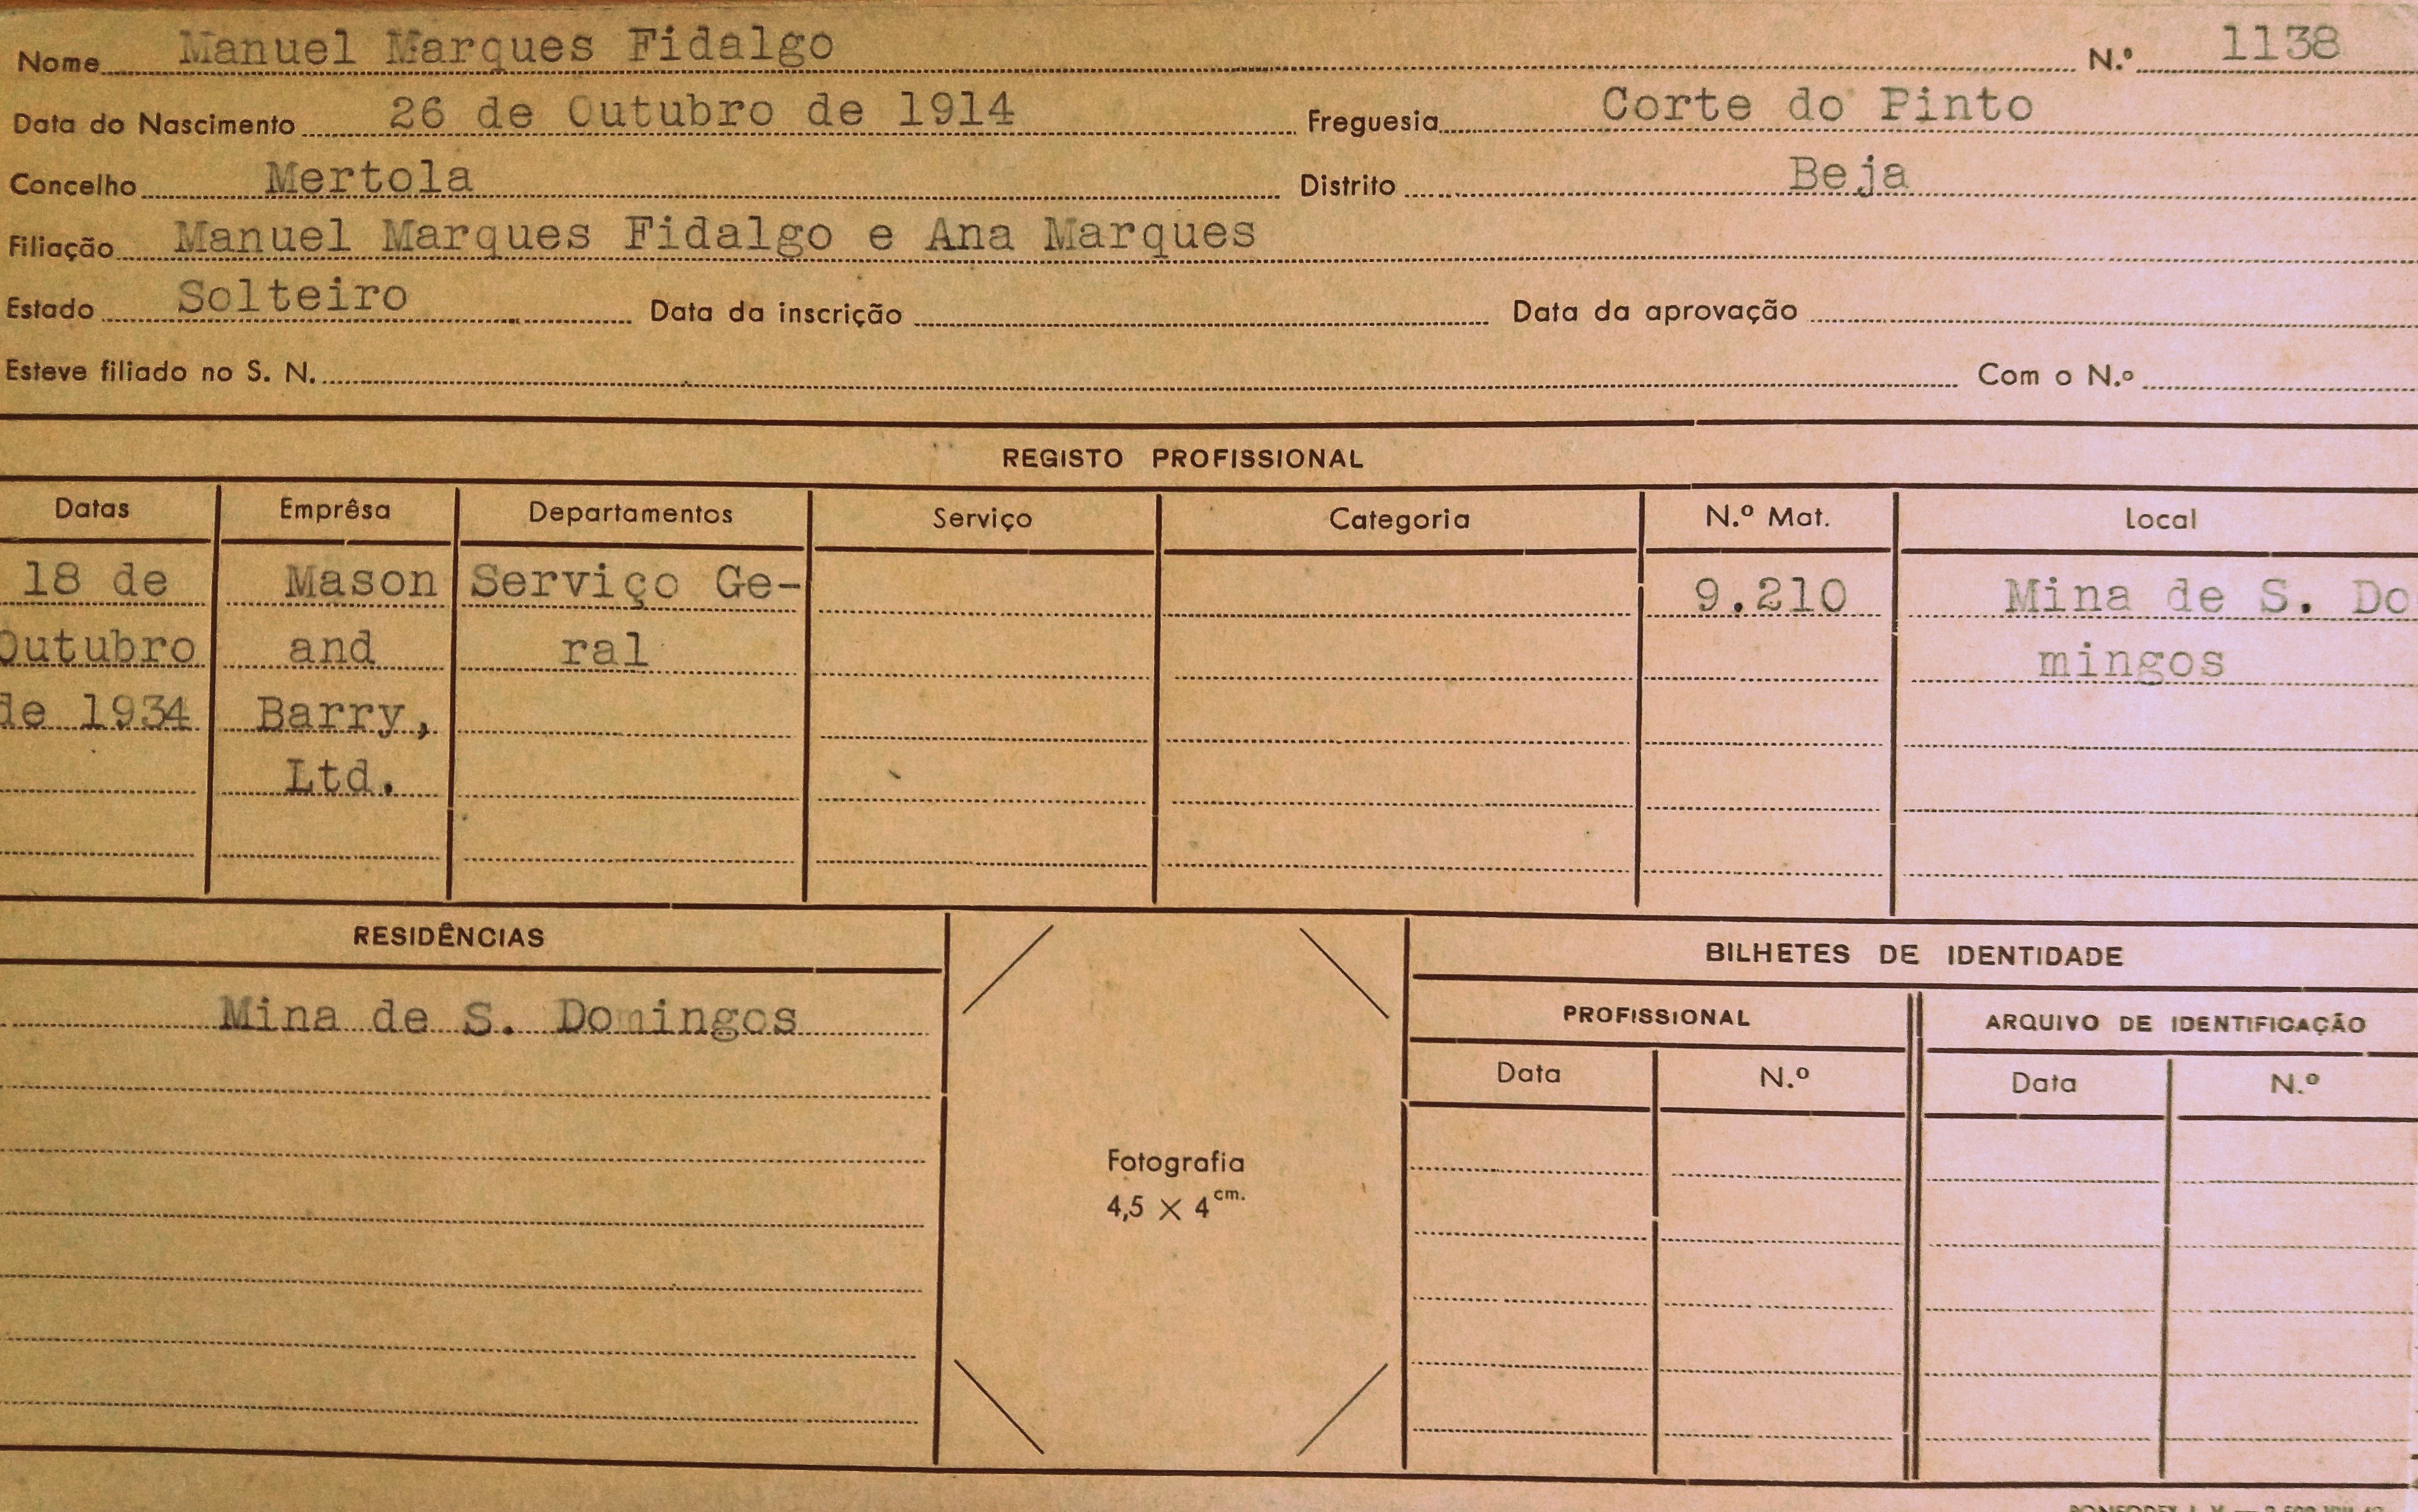 Nome Manuel Marques Fidalgo N.º 1138
Data do Nascimento 26 de Outubro de 1914 Freguesia Corte do Pinto
Concelho Mertola Distrito Beja
Filiação Manuel Marques Fidalgo e Ana Marques
Estado Solteiro Data da inscrição Data da aprovação
Esteve filiado no S. N. Com o N.º
REGISTO PROFISSIONAL
Datas Emprêsa Departamentos Serviço Categoria N.º Mat. Local
18 de Mason Serviço Ge- 9.210 Mina de S. Do
Outubro and ral mingos
de 1934 Barry,
Ltd.
RESIDÊNCIAS BILHETES DE IDENTIDADE
Mina de S. Domingos PROFISSIONAL ARQUIVO DE IDENTIFICAÇÃO
Data N.º Data N.º
Fotografia
4,5 × 4 cm.